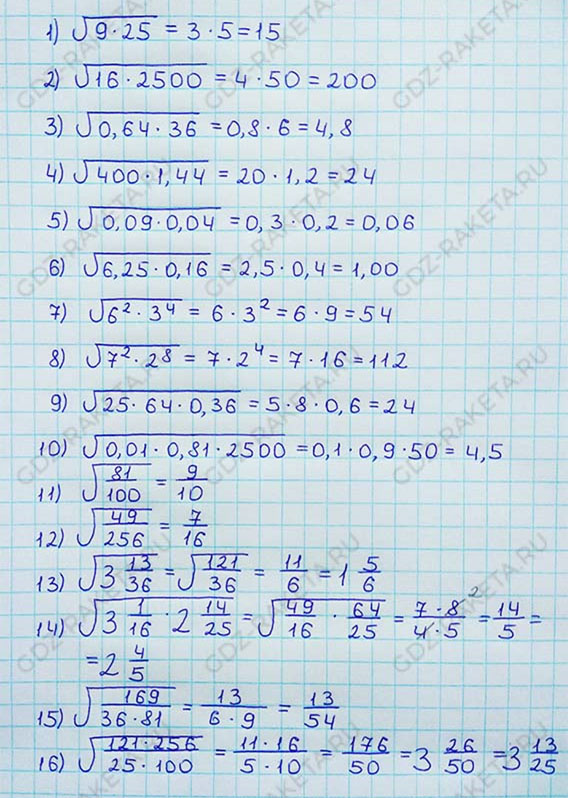 1) √(9·25) = 3·5=15
2) √(16·2500) = 4·50=200
3) √(0,64·36) =0,8·6=4,8
4) √(400·1,44) = 20·1,2=24
5) √(0,09·0,04) =0,3·0,2=0,06
6) √(6,25·0,16) =2,5·0,4=1,00
7) √(6²·3⁴) = 6·3²=6·9=54
8) √(7²·2⁸) = 7·2⁴=7·16=112
9) √(25·64·0,36) =5·8·0,6=24
10) √(0,01·0,81·2500) =0,1·0,9·50= 4,5
11) √(81/100) = 9/10
12) √(49/256) = 7/16
13) √(3 13/36) = √(121/36) = 11/6 = 1 5/6
14) √(3 1/16 · 2 14/25) = √(49/16 · 64/25) = (7·8²)/(4·5) = 14/5 =
= 2 4/5
15) √(169/(36·81)) = 13/(6·9) = 13/54
16) √((121·256)/(25·100)) = (11·16)/(5·10) = 176/50 = 3 26/50 = 3 13/25
GDZ-RAKETA.RU